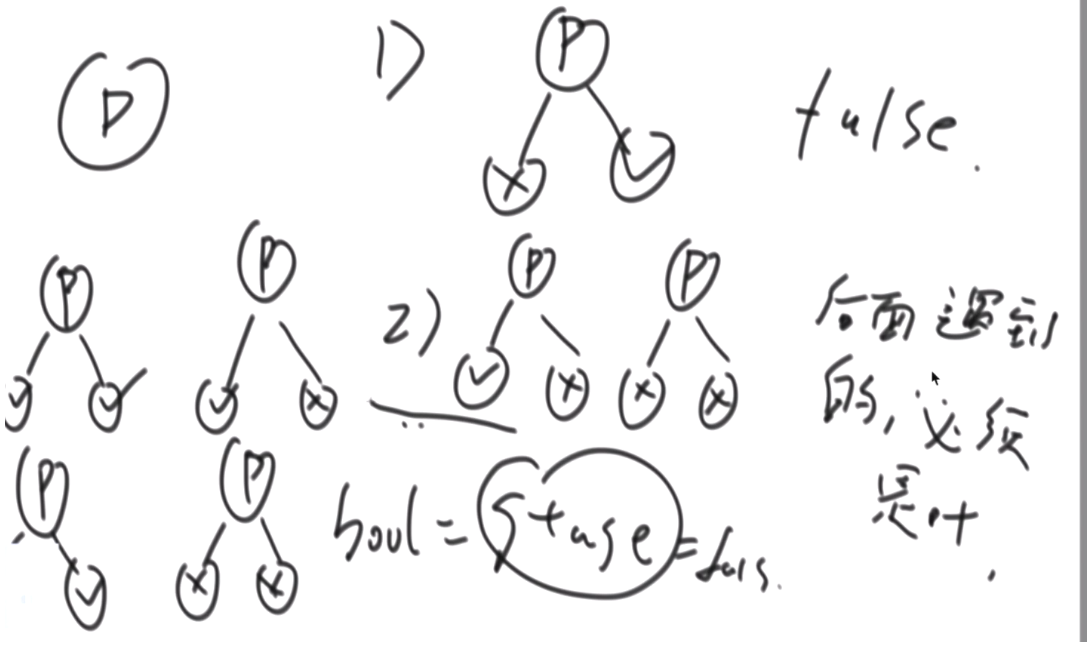 P
1)
P
false.
P
P
2)
P
P
后面遇到
的,必须
是叶
P
P
bool = stage = fals.